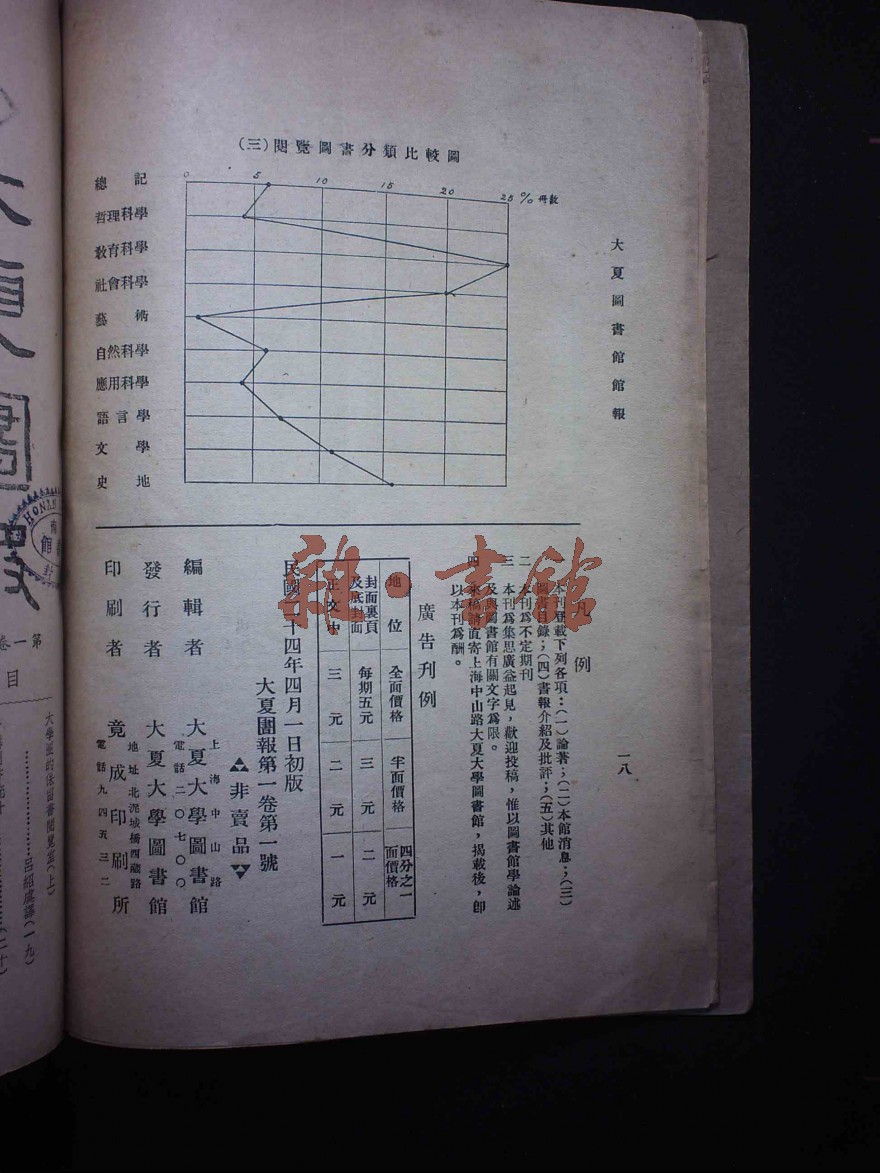 大夏圖書館館報
一八
(三)閱覽圖書分類比較圖
0 5 10 15 20 25 % 冊數
總記
哲理科學
敎育科學
社會科學
藝術
自然科學
應用科學
語言學
文學
史地
凡例
本刊登載下列各項：(一)論著；(二)本館消息；(三)
圖書目錄；(四)書報介紹及批評；(五)其他
二 本刊爲不定期刊
三 本刊爲集思廣益起見，歡迎投稿，惟以圖書館學論述
及與圖書館有關文字爲限。
四 來稿請直寄上海中山路大夏大學圖書館，揭載後，卽
以本刊爲酬。
廣告刋例
地位 全面價格 半面價格 四分之一面價格
封面裏頁及底封面 每期五元 三元 二元
正文中 三元 二元 一元
民國二十四年四月一日初版
大夏圖報第一卷第一號
非賣品
編輯者 大夏大學圖書館
上海中山路
電話二〇七〇〇
發行者 大夏大學圖書館
地址北泥城橋西藏路
印刷者 竟成印刷所
電話九四五三二
雜·書館
第一卷
目
大學班的保留書閱覽室(上)
呂紹虞譯(一九)
HONAN